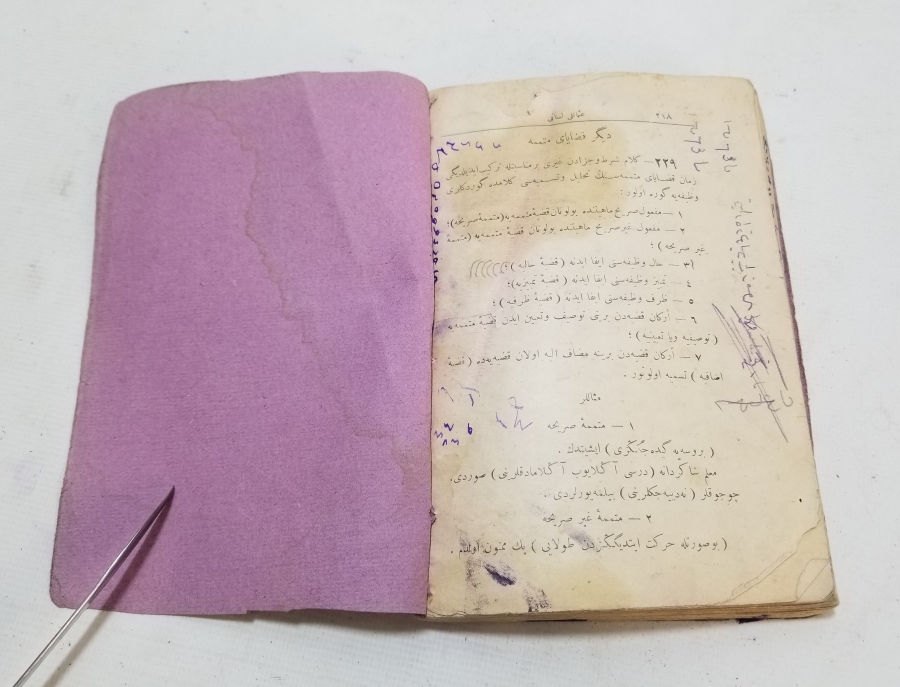 ٢١٨ مثاللی لسانی
دیگر قضایای متممه
٢٢٩ — كلام شرط وجزادن غیری برمناسبتله تركیب ایدیلدیگی
زمان قضایای متممه‌سنڭ تحلیل وتسمیه‌سی كلامده گوردكلری
وظیفه‌یه گوره اولور:
١ — مفعول صریح ماهیتنده بولونان قضیهٔ متممه‌یه (متممهٔ صریحه)؛
٢ — مفعول غیر صریح ماهیتنده بولونان قضیهٔ متممه‌یه (متممهٔ
غیر صریحه)؛
٣ — حال وظیفه‌سنی ایفا ایدنه (قضیهٔ حالیه)؛
٤ — تمییز وظیفه‌سنی ایفا ایدنه (قضیهٔ تمییزیه)؛
٥ — ظرف وظیفه‌سنی ایفا ایدنه (قضیهٔ ظرفیه)؛
٦ — اركان قضیه‌دن برینی توصیف وتعیین ایدن قضیهٔ متممه‌یه
(توصیفیه ویا تعیینیه)؛
٧ — اركان قضیه‌دن برینه مضاف الیه اولان قضیه‌یه‌ده (قضیهٔ
اضافیه) تسمیه اولونور.
مثاللر
١ — متممهٔ صریحه
(بروسه‌یه گیده‌جڭگزی) ایشیتدك.
معلم شاگردانه (درسی آڭلایوب آڭلامادقلرینی) صوردی.
چوجوقلر (نه‌دییه‌جكلرینی) بیلمه‌یورلردی.
٢ — متممهٔ غیر صریحه
(بوصورتله حركت ایتدیگڭزدن طولایی) پك ممنون اولدم.